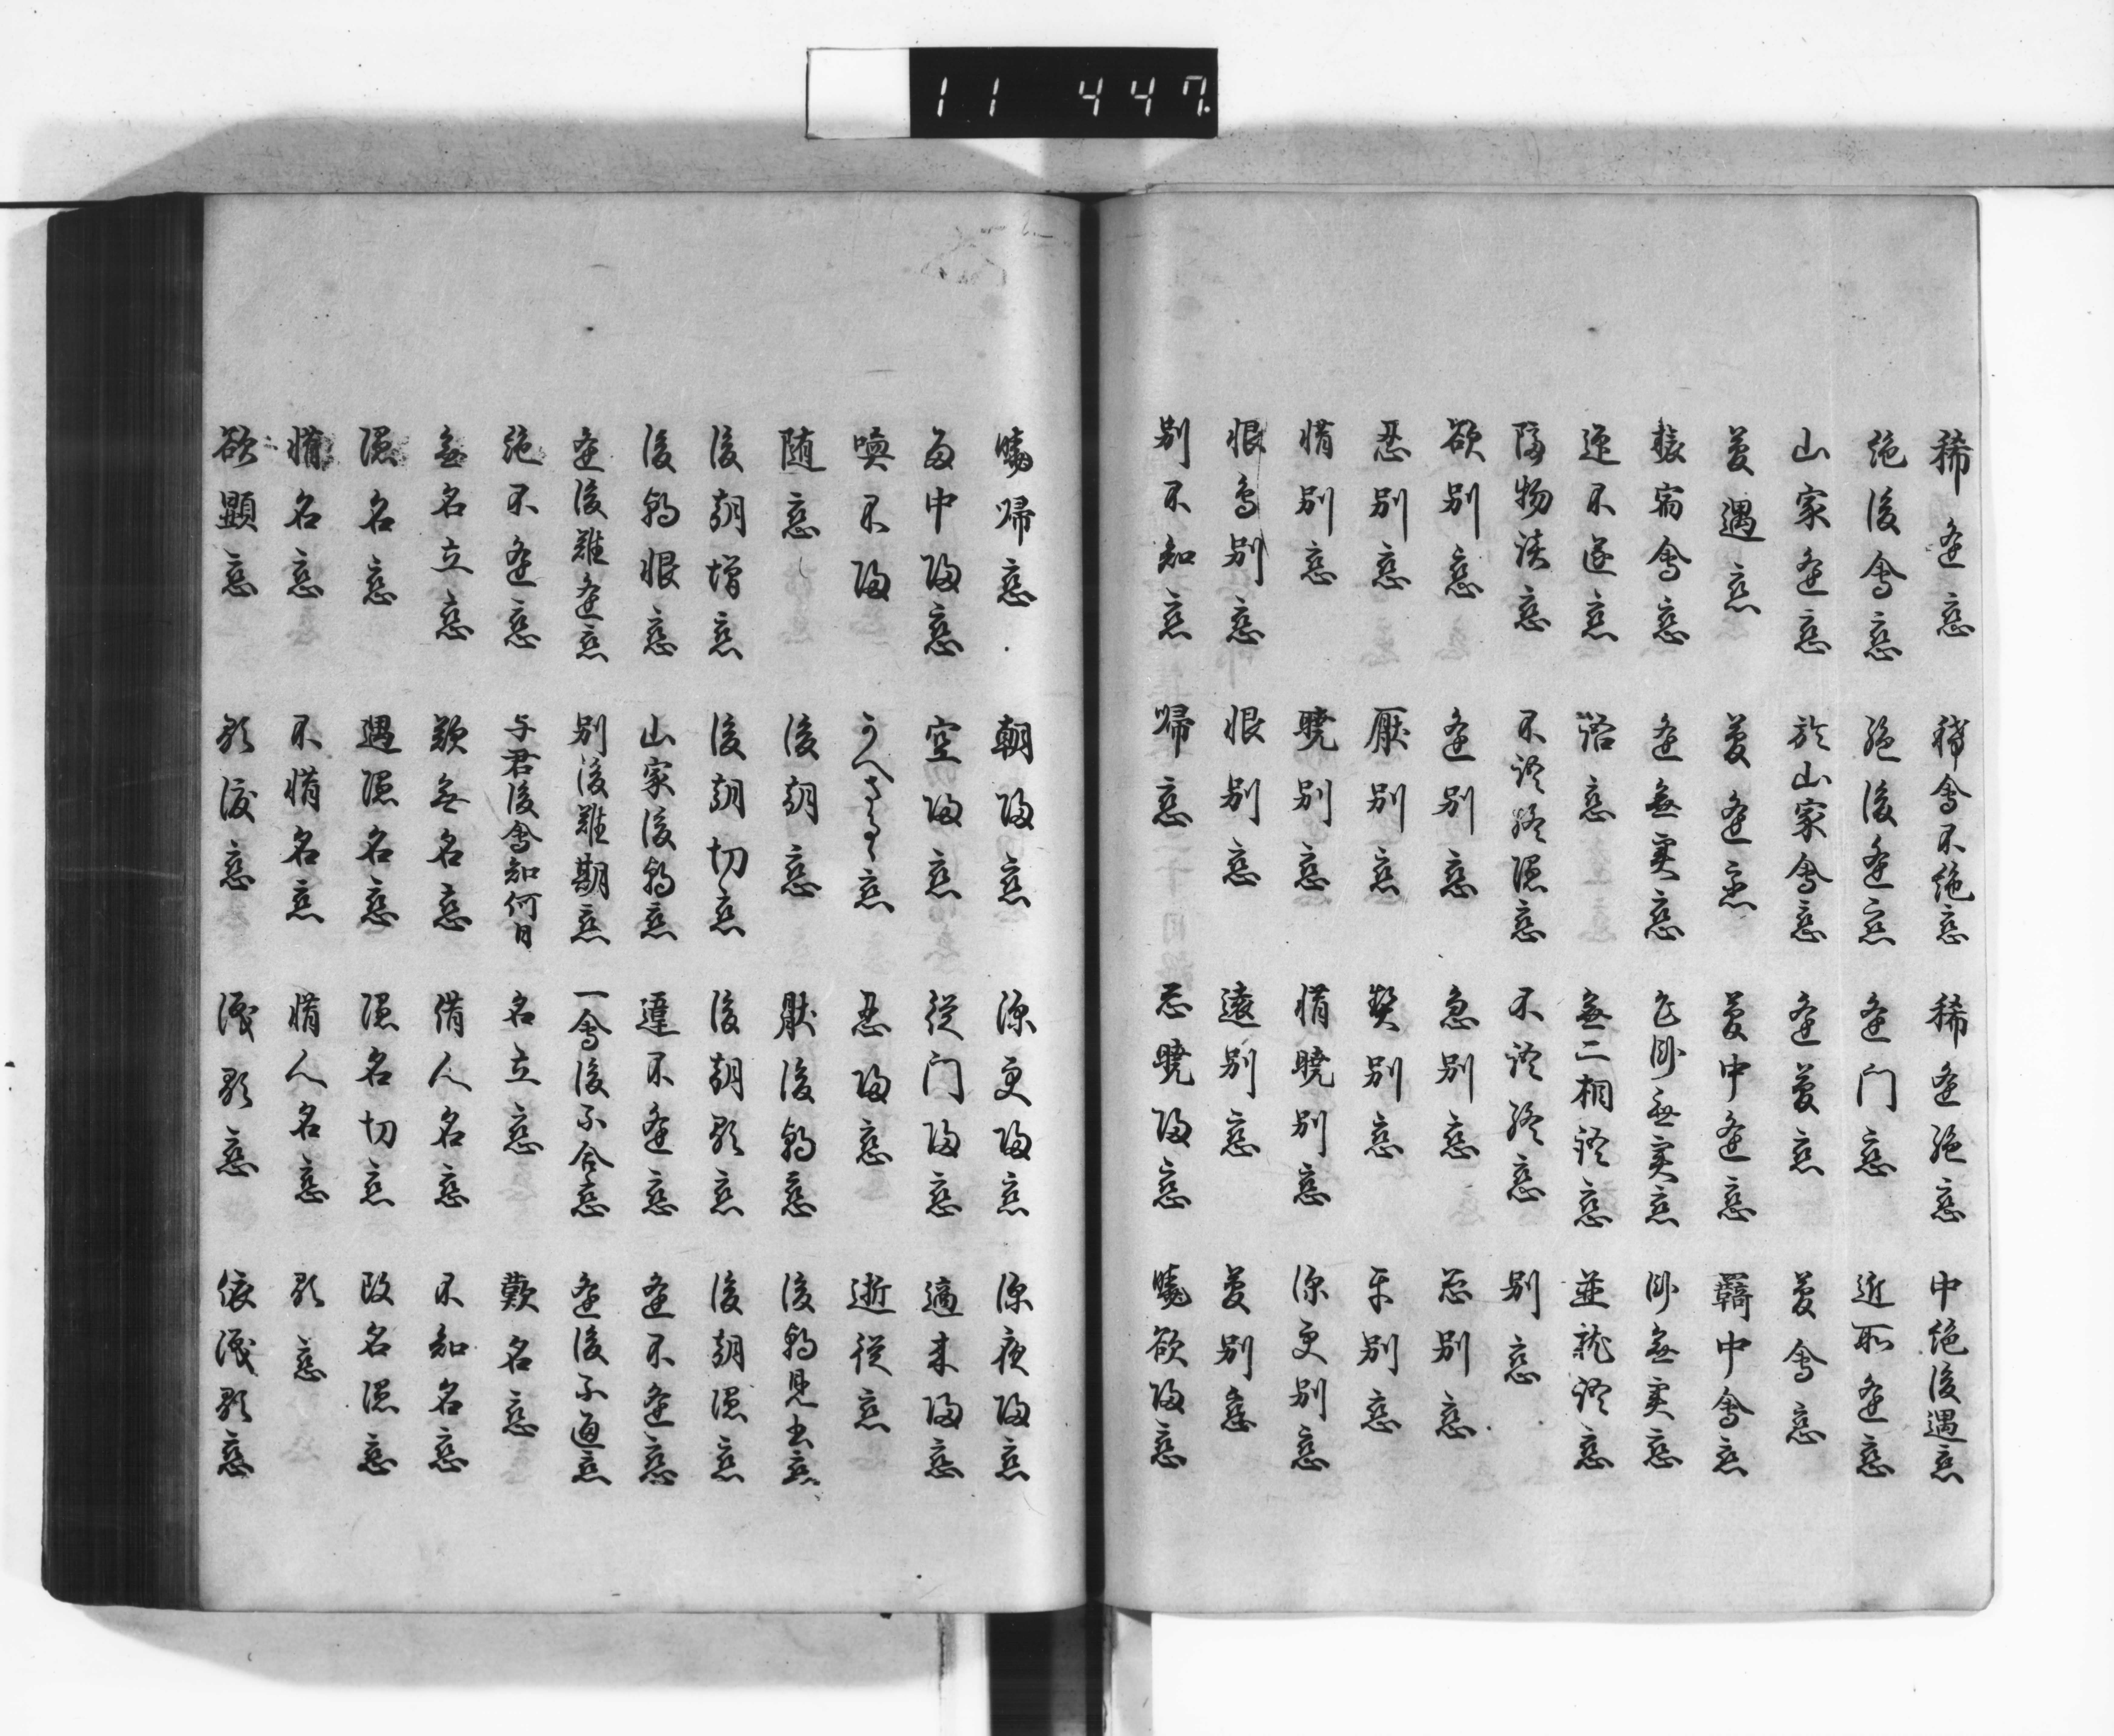 11 447.
稀逢恋 稀会不絶恋 稀逢絶恋 中絶後遇恋
絶後会恋 絶後逢恋 逢門恋 近所逢恋
山家逢恋 於山家会恋 逢夢恋 夢会恋
夢遇恋 夢逢恋 夢中逢恋 羇中会恋
旅宿会恋 逢無実恋 乍臥無実恋 臥無実恋
逢不遂恋 宿恋 無二相語恋 並枕語恋
隔物談恋 不語終隠恋 不語終恋 別恋
欲別恋 逢別恋 急別恋 忘別恋
忍別恋 厭別恋 契別恋 互別恋
惜別恋 暁別恋 惜暁別恋 深更別恋
恨鳥別恋 恨別恋 遠別恋 夢別恋
別不知恋 帰恋 忘暁帰恋 暁欲帰恋
暁帰恋 朝帰恋 深更帰恋 深夜帰恋
雨中帰恋 空帰恋 従門帰恋 適来帰恋
喚不帰 かへさまつ恋 忍帰恋 逝従恋
随恋 後朝恋 厭後朝恋 後朝見書恋
後朝増恋 後朝切恋 後朝顕恋 後朝隠恋
後朝恨恋 山家後朝恋 違不逢恋 逢不逢恋
逢後難逢恋 別後難期恋 一会後不合恋 逢後不通恋
絶不逢恋 与君後会知何日 名立恋 歎名恋
無名立恋 歎無名恋 借人名恋 不知名恋
隠名恋 遇隠名恋 隠名切恋 改名隠恋
惜名恋 不惜名恋 惜人名恋 顕恋
欲顕恋 顕後恋 涙顕恋 依涙顕恋